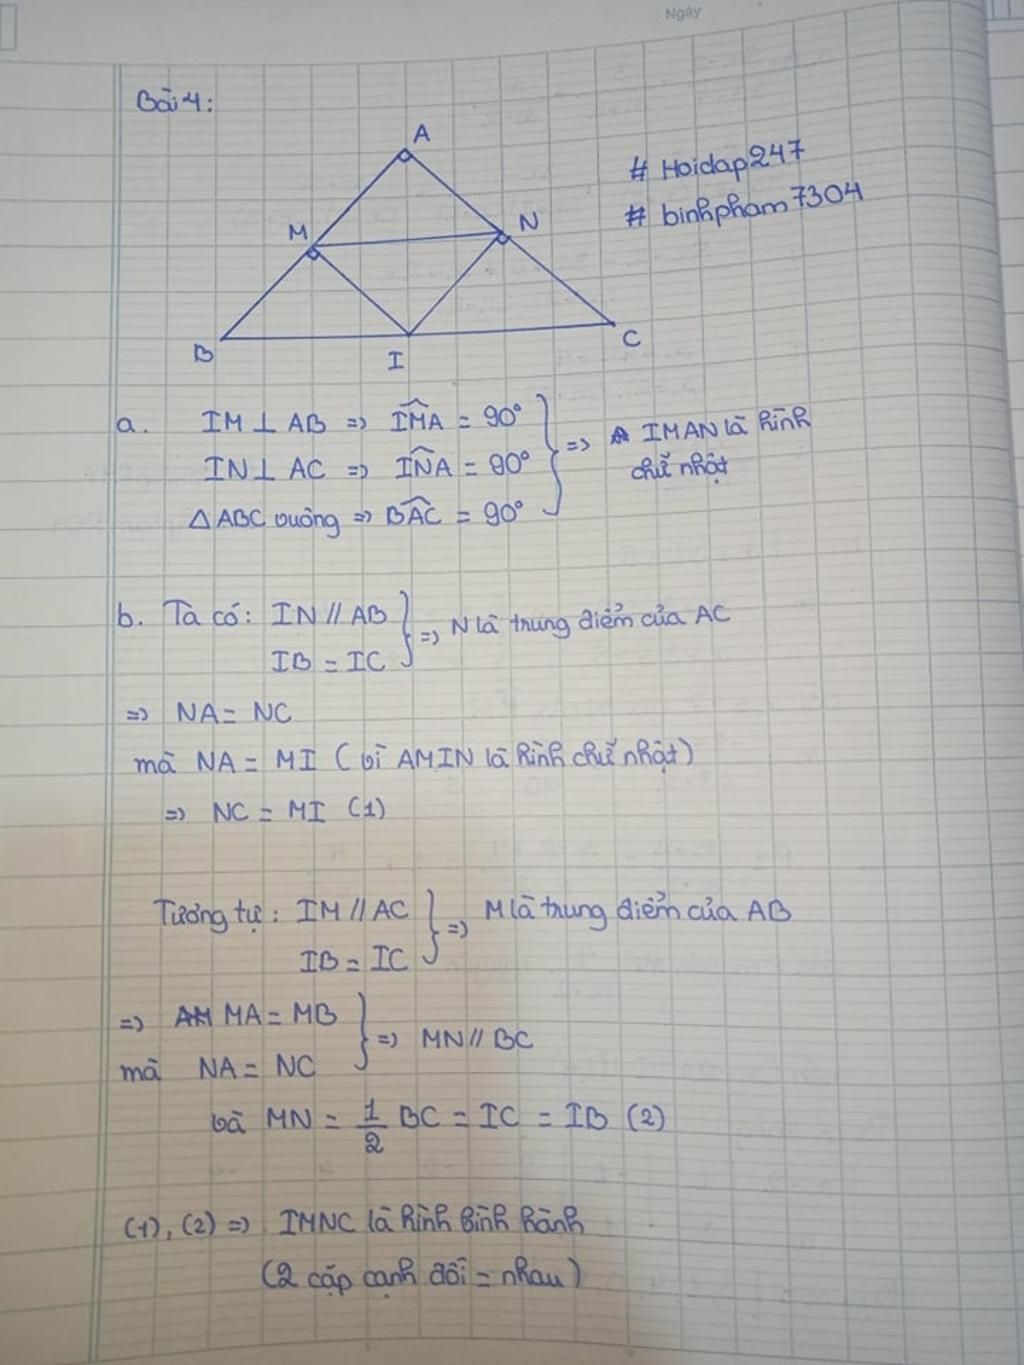 Ngày
Bài 4:
A
# Hoidap247
# binhpham7304
M
N
B
I
C
a. IM ⊥ AB => IMA = 90°
IN ⊥ AC => INA = 90°
△ ABC vuông => BAC = 90°
=> IMAN là hình
chữ nhật
b. Ta có: IN // AB
IB = IC
=> N là trung điểm của AC
=> NA = NC
mà NA = MI (vì AMIN là hình chữ nhật)
=> NC = MI (1)
Tương tự: IM // AC
IB = IC
=> M là trung điểm của AB
=> MA = MB
mà NA = NC
=> MN // BC
và MN = 1/2 BC = IC = IB (2)
(1), (2) => IMNC là hình bình hành
(2 cặp cạnh đối = nhau)